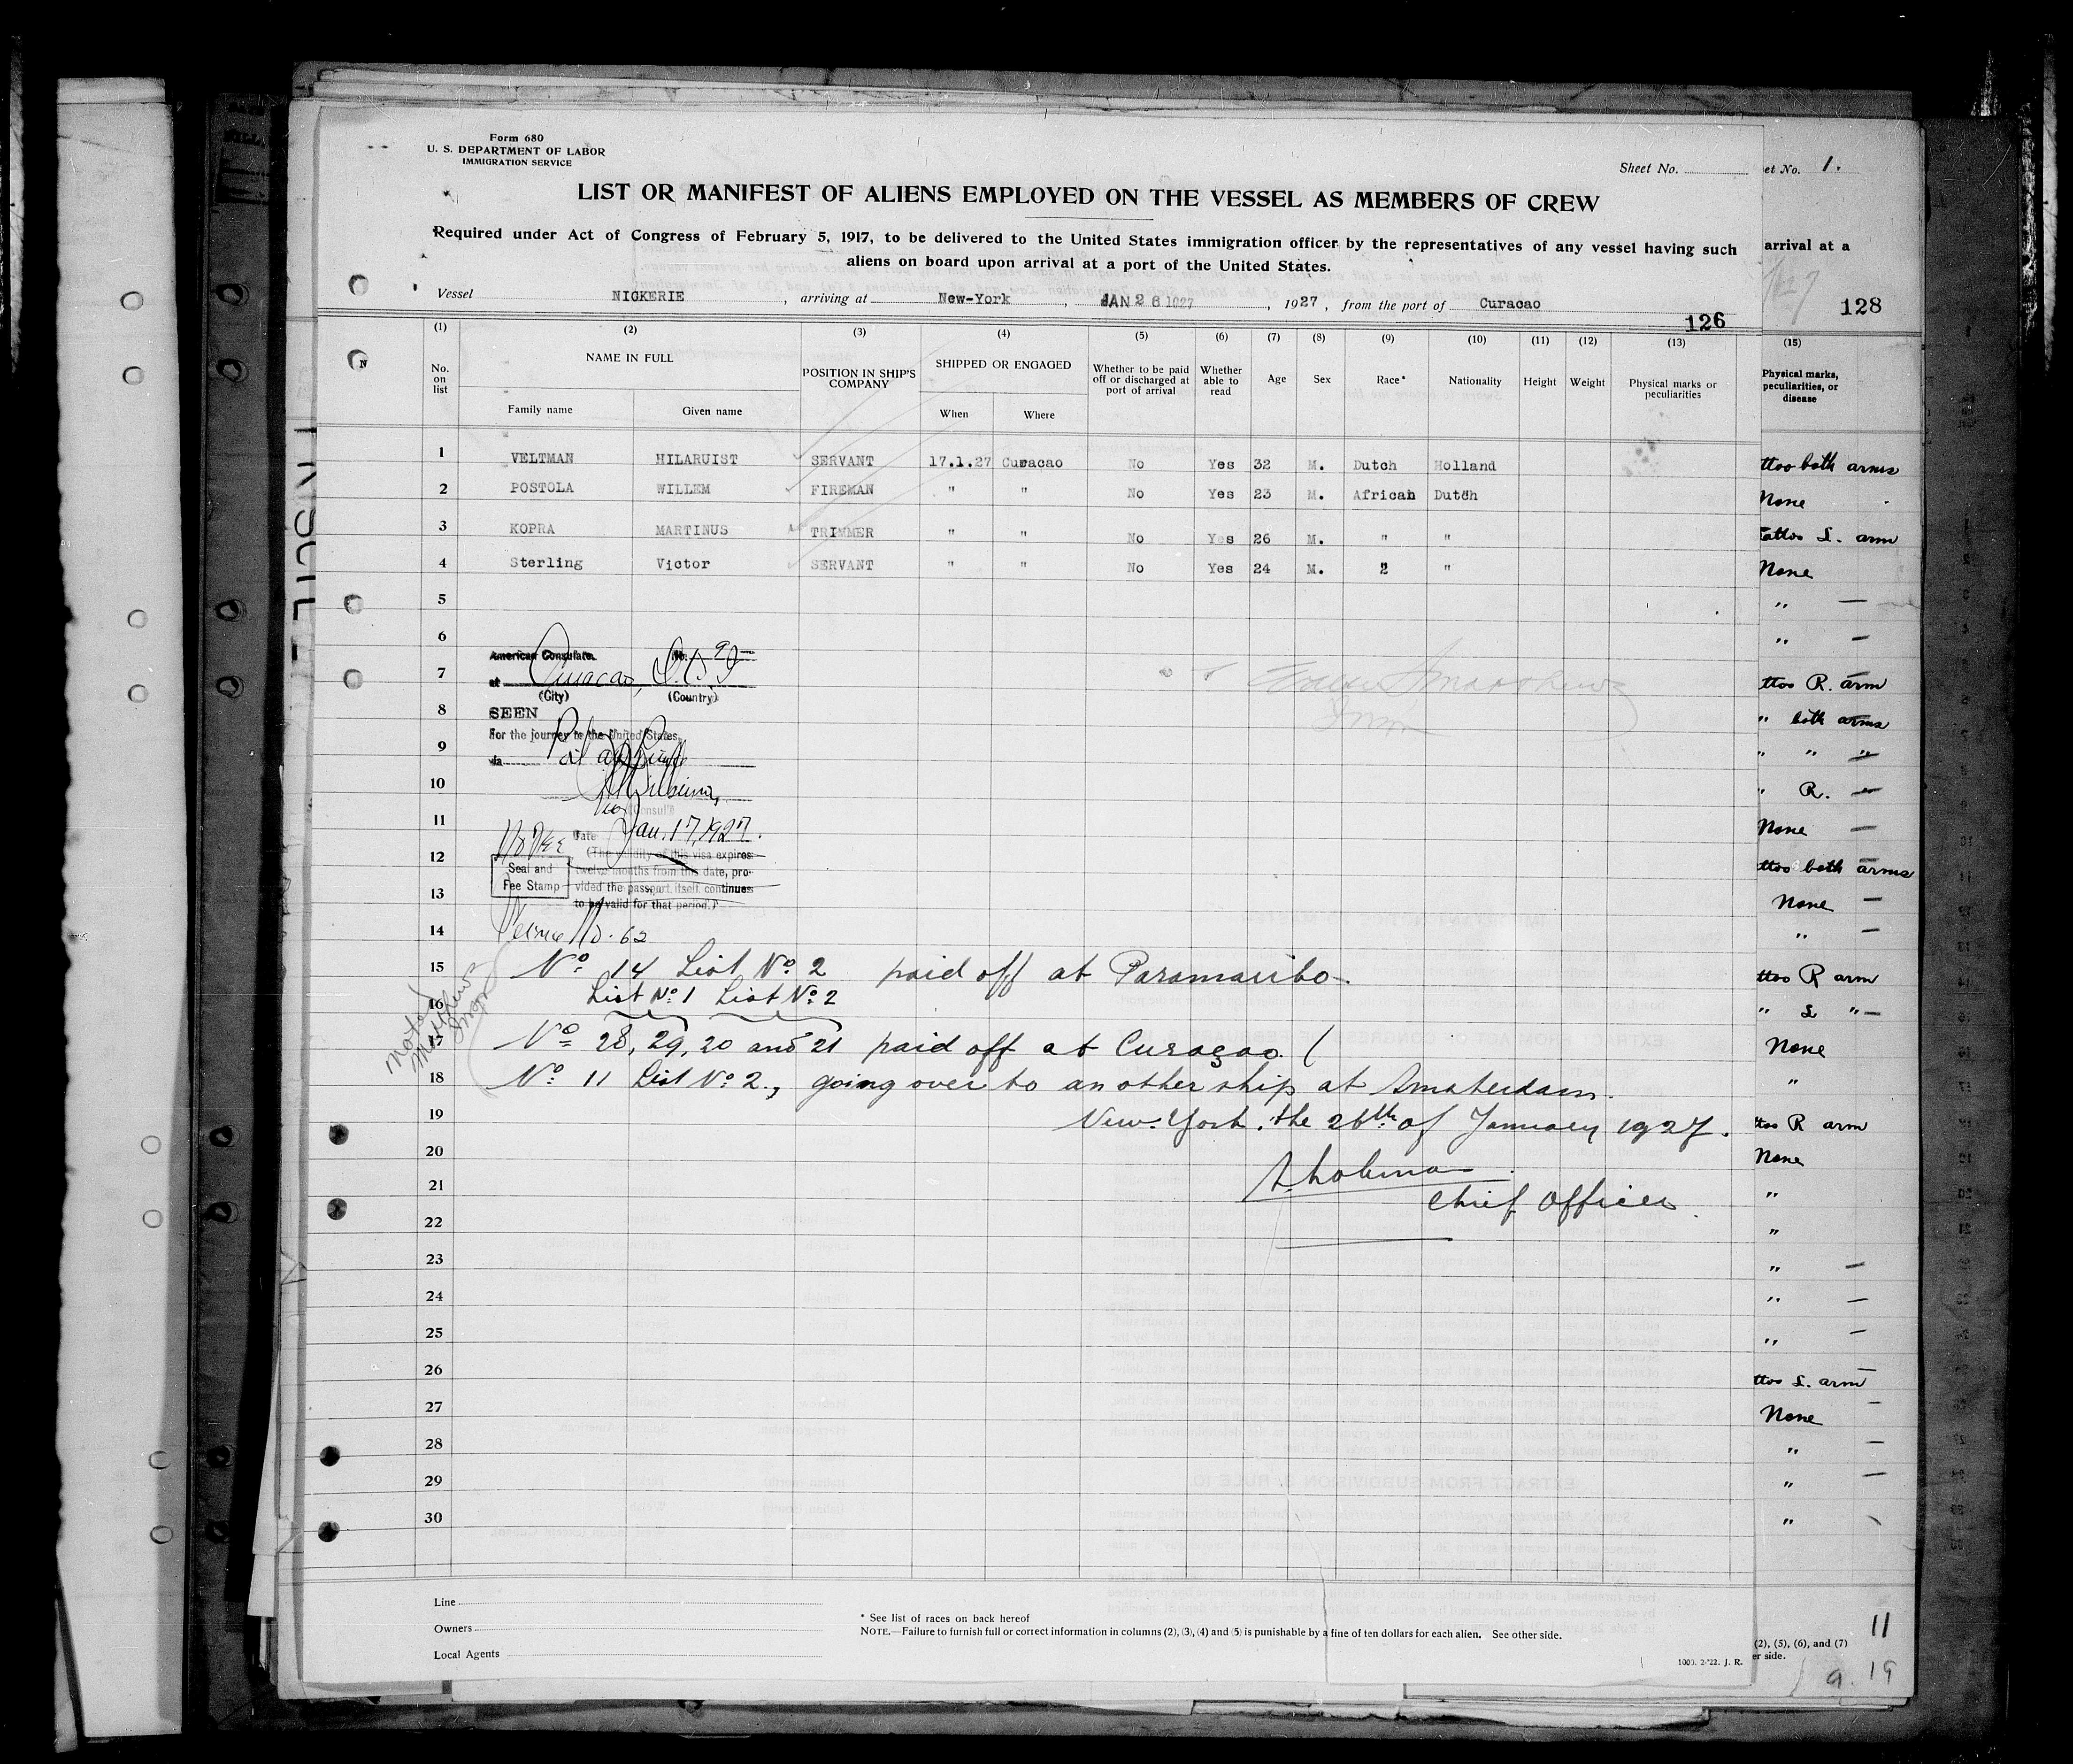 Form 680
U. S. DEPARTMENT OF LABOR
IMMIGRATION SERVICE
Sheet No.
et No. 1.
LIST OR MANIFEST OF ALIENS EMPLOYED ON THE VESSEL AS MEMBERS OF CREW
Required under Act of Congress of February 5, 1917, to be delivered to the United States immigration officer by the representatives of any vessel having such
aliens on board upon arrival at a port of the United States.
arrival at a
Vessel NICKERIE, arriving at New-York, JAN 26 1927, 1927, from the port of Curacao
126
128
(1) (2) (3) (4) (5) (6) (7) (8) (9) (10) (11) (12) (13) (15)
No. on list
NAME IN FULL
Family name Given name
POSITION IN SHIP'S COMPANY
SHIPPED OR ENGAGED
When Where
Whether to be paid off or discharged at port of arrival
Whether able to read
Age Sex Race* Nationality Height Weight
Physical marks or peculiarities
Physical marks, peculiarities, or disease
1 VELTMAN HILARUIST SERVANT 17.1.27 Curacao No Yes 32 M. Dutch Holland
2 POSTOLA WILLEM FIREMAN " " No Yes 23 M. African Dutch
3 KOPRA MARTINUS TRIMMER " " No Yes 26 M. " "
4 Sterling Victor SERVANT " " No Yes 24 M. " "
5
6
7
8
9
10
11
12
13
14
15
16
17
18
19
20
21
22
23
24
25
26
27
28
29
30
American Consulate No.
at Curacao, D.W.I.
(City) (Country)
SEEN
For the journey to the United States,
via
(Consul)
Date Jan. 17, 1927.
No Fee
(The validity of this visa expires
Seal and
Fee Stamp
twelve months from this date, pro-
vided the passport itself continues
to be valid for that period.)
Service No. 62
No. 14 List No. 2 paid off at Paramaribo.
List No. 1 List No. 2
No. 28, 29, 20 and 21 paid off at Curaçao.
No. 11 List No. 2, going over to another ship at Amsterdam.
New-York, the 26th of January 1927.
Chief Officer
Noted
Matthews
Insp
ttoo both arms
None
attoo L. arm
None
" —
" —
ttoo R. arm
" both arms
" " "
" R. "
None —
ttoo both arms
None —
" —
ttoo R arm
" L "
None
"
ttoo R arm
None
"
"
" —
" —
" —
ttoo L. arm
None —
" —
" —
"
Line
Owners
Local Agents
* See list of races on back hereof
NOTE.—Failure to furnish full or correct information in columns (2), (3), (4) and (5) is punishable by a fine of ten dollars for each alien. See other side.
1000. 2-'22. J. R.
(2), (5), (6), and (7)
er side.
11
9. 19